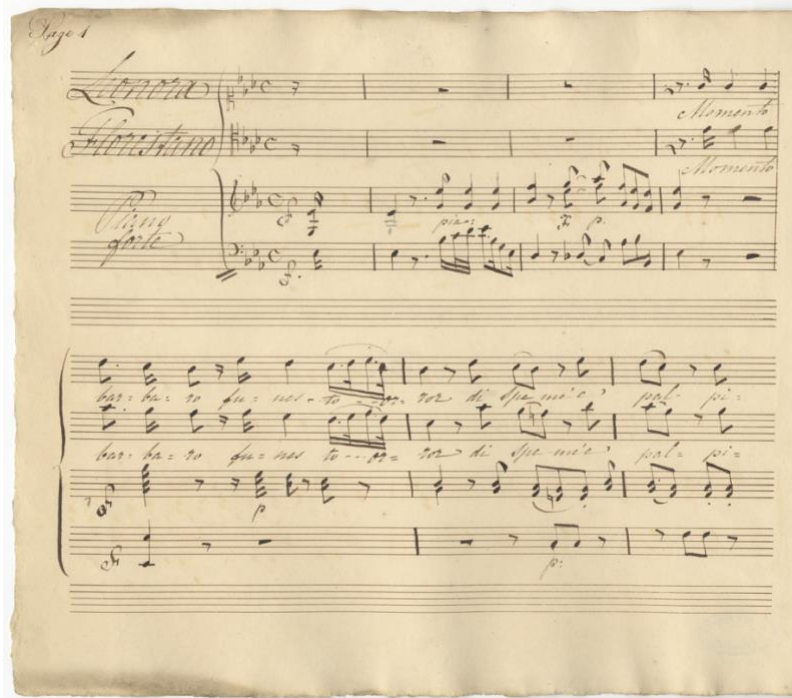 Page 1
Leonora
Floristano
Piano
forte
Momento
Momento
F.
pia:
F. p.
F.
bar= ba= ro fu= nes= to --or= ror di spe m'è' pal= pi=
bar= ba= ro fu= nes to ---or= ror di spe m'è' pal= pi=
F p
F p: